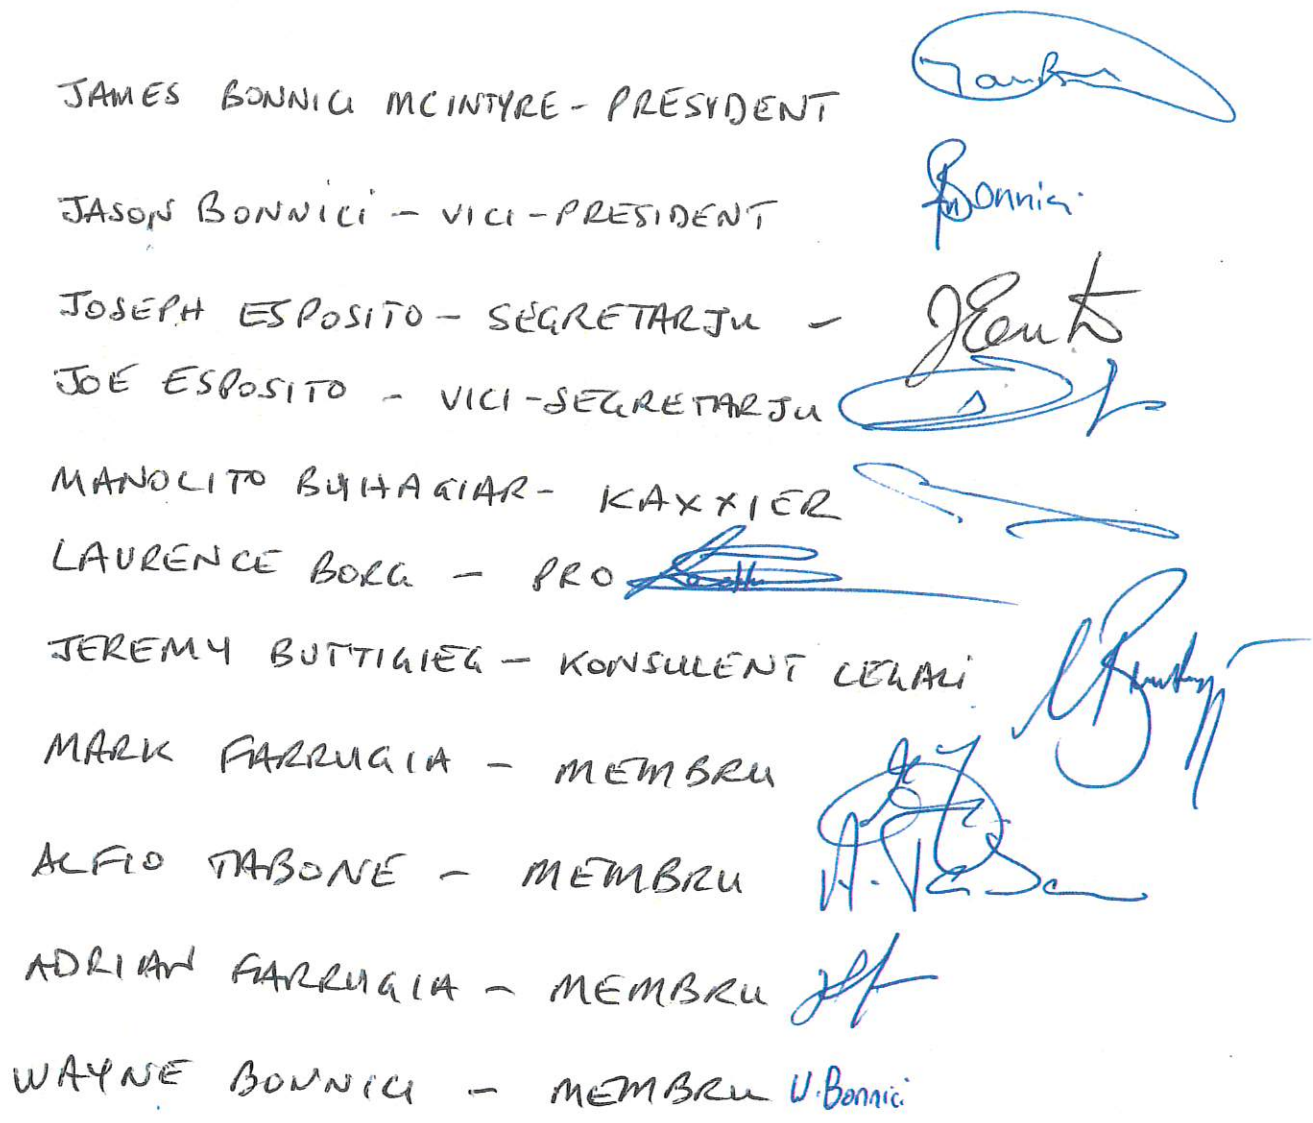 JAMES BONNICI MCINTYRE - PRESIDENT
JASON BONNICI - VICI-PRESIDENT Bonnici
JOSEPH ESPOSITO - SEGRETARJU -
JOE ESPOSITO - VICI-SEGRETARJU
MANOLITO BUHAGIAR - KAXXIER
LAURENCE BORG - PRO
JEREMY BUTTIGIEG - KONSULENT LEGALI
MARK FARRUGIA - MEMBRU
ALFIO TABONE - MEMBRU
ADRIAN FARRUGIA - MEMBRU
WAYNE BONNICI - MEMBRU W. Bonnici